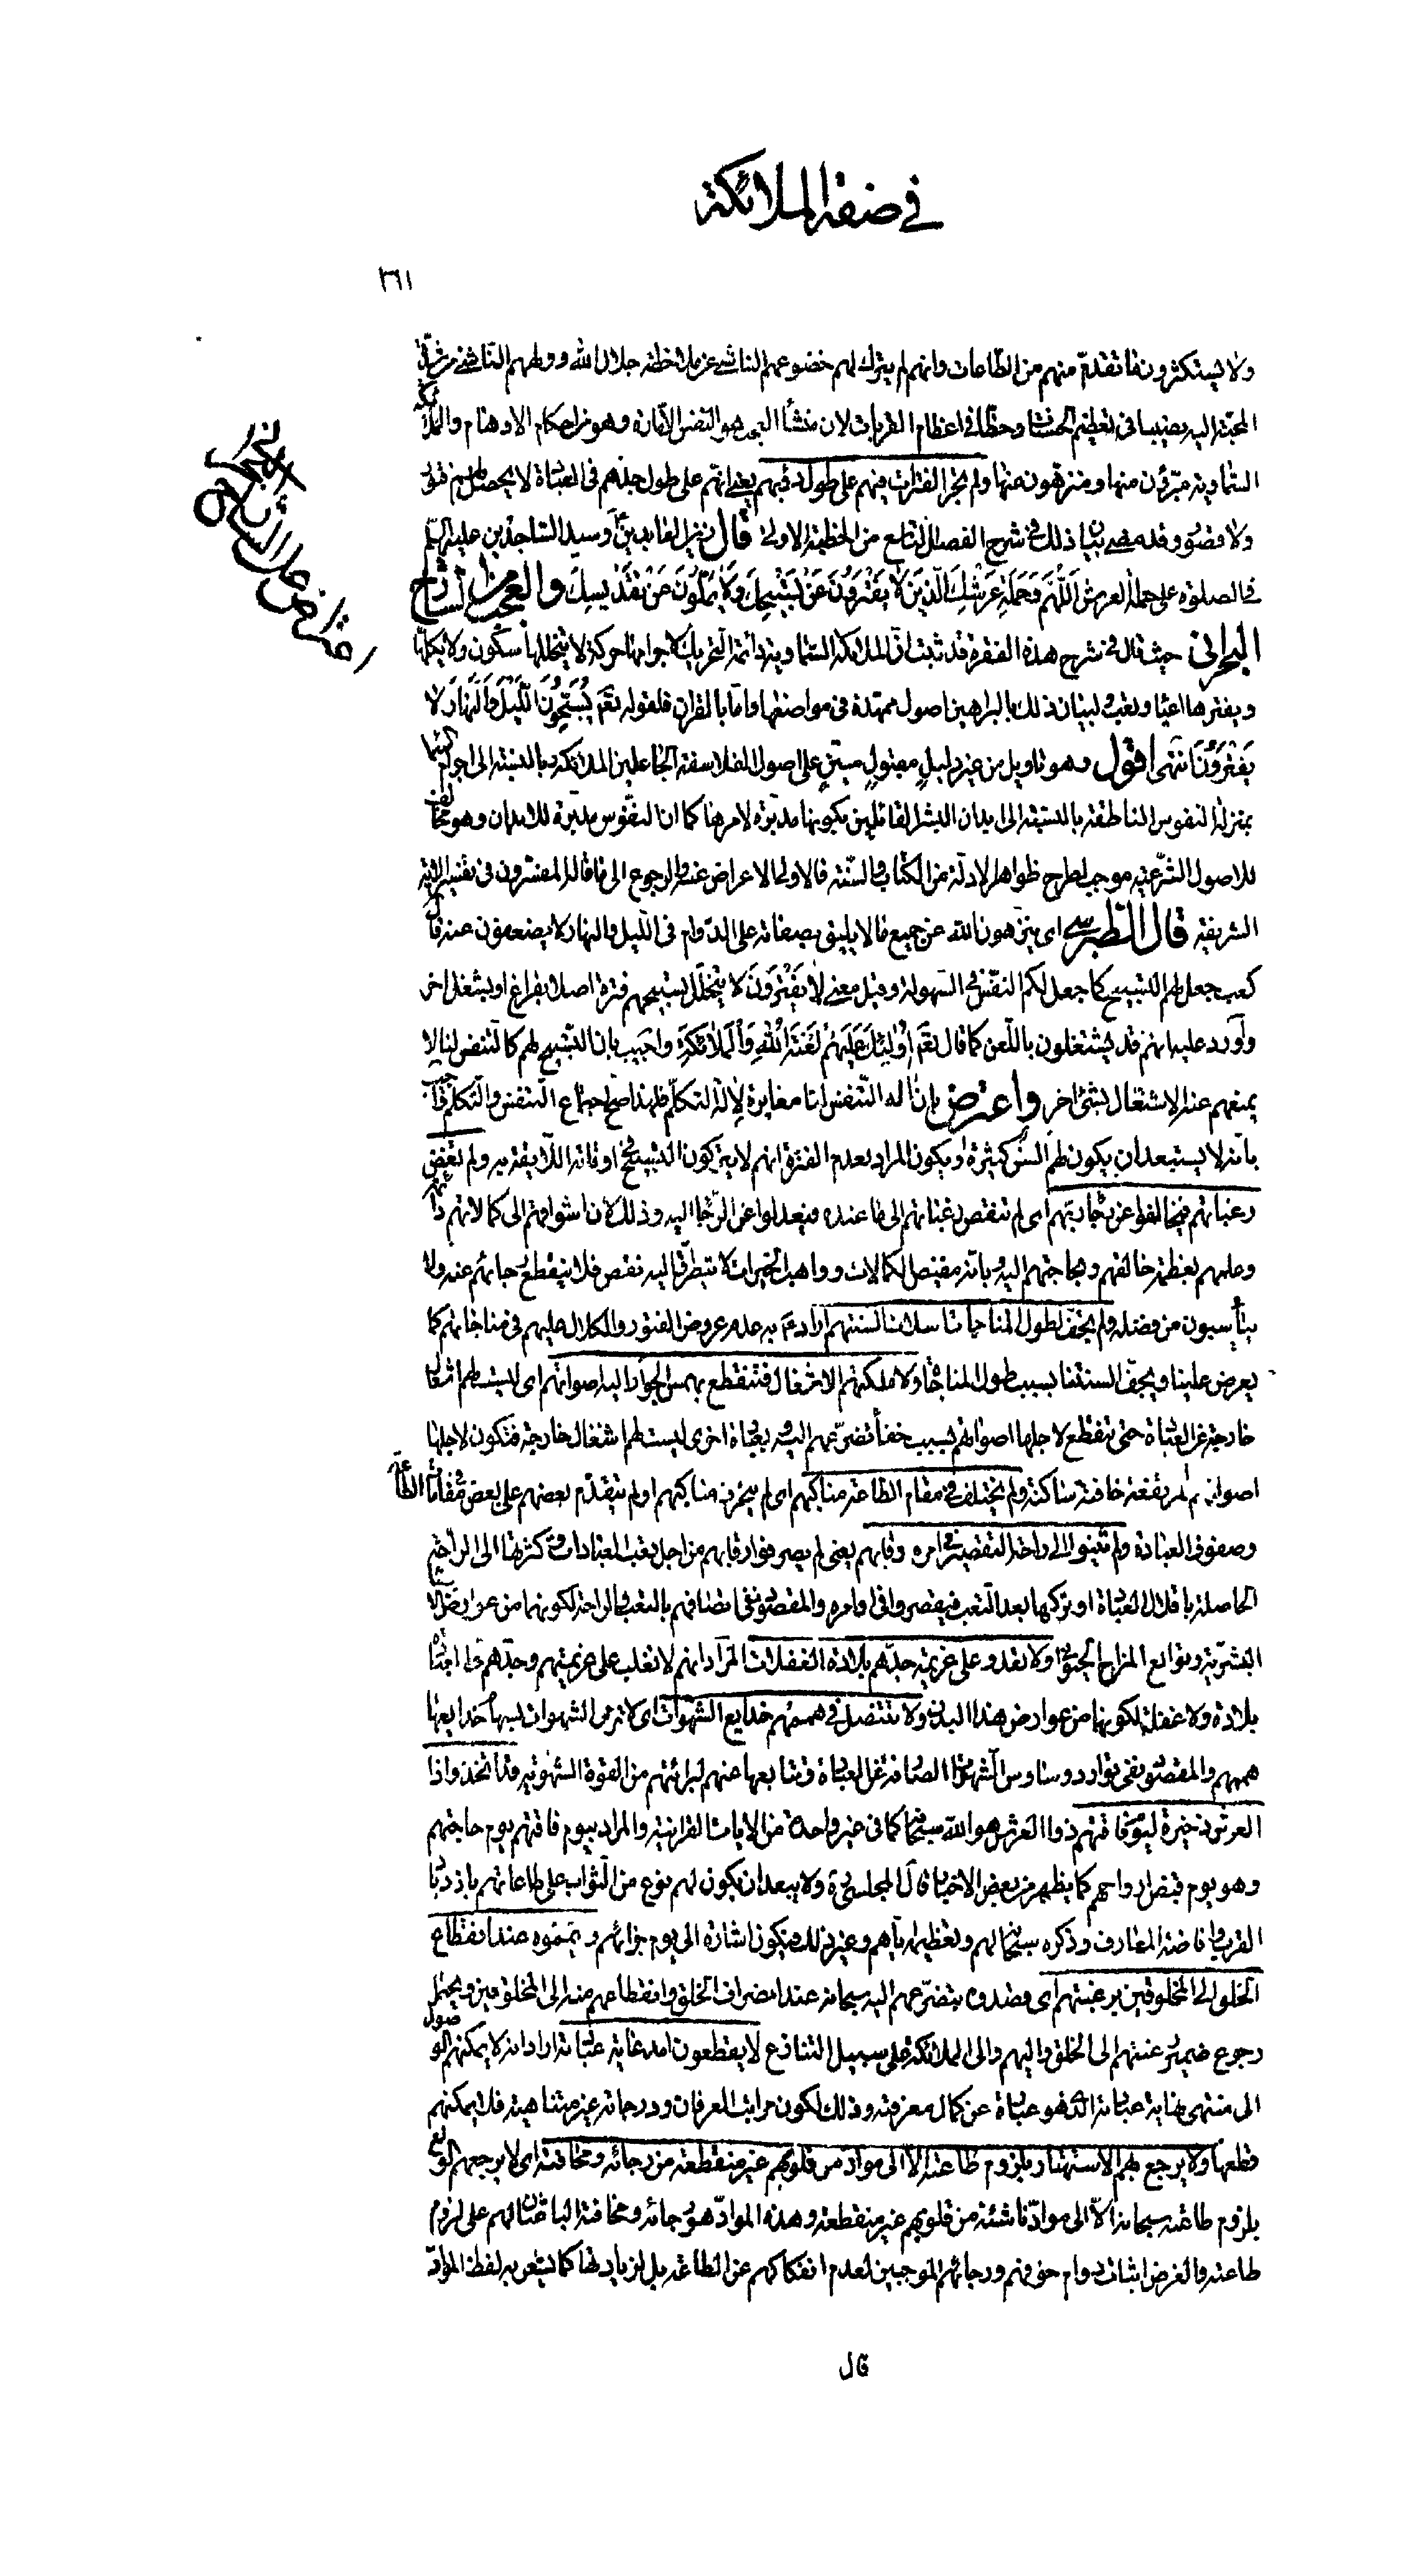 في صفة الملائكة
٣٦١
ولا يستكثرون ما تقدّم منهم من الطاعات وانهم لم يترك لهم خضوعهم الناشي عن ملاحظة جلال الله وولههم الناشي من شدّة
المحبّة اليه نصيبا في تعظيم الحسنات وحظّا في اعظام القربات لان منشأ العجب هو النفس الامّارة وهو من احكام الاوهام والملائكة
السّماوية مبرّؤن منها ومنزّهون عنها ولم تجر الفترات فيهم على طول دؤبهم يعني انّهم على طول جدّهم في العبادة لا يحصل لهم فتور
ولا قصور وقد مضى بيان ذلك في شرح الفصل التاسع من الخطبة الاولى قال زين العابدين وسيد الساجدين عليه السلم
في الصلوة على حملة العرش اَللّهُمَّ وَحَمَلَةِ عَرْشِكَ الَّذينَ لا يَفْتُرُونَ عَنْ تَسْبيحِكَ وَلا يَمَلُّونَ عَنْ تَقْديسِكَ والعجب من الشارح
البحراني حيث قال في شرح هذه الفقرة قد ثبت انّ الملائكة السّماوية دائمة التحريك لاجرامها حركة لا يتخلّلها سكون ولا يكلّها
ويفترها اعياء وتعب ولبيان ذلك بالبراهين اصول ممهّدة في مواضعها وامّا بالقران فلقوله تعم يُسَبِّحُونَ اللَّيْلَ وَالنَّهارَ لا
يَفْتُرُونَ انتهى اقول وهو تاويل من غير دليل مقبول مبتن على اصول الفلاسفة الجاعلين الملائكة بالنسبة الى اجرام السّماء
بمنزلة النفوس الناطقة بالنسبة الى ابدان البشر القائلين بكونها مدبّرة لامرها كما ان النفوس مدبّرة للابدان وهو مخالف
للاصول الشّرعية موجب لطرح ظواهر الادلّة من الكتاب والسّنة فالاولى الاعراض عنه والرجوع الى ما قاله المفسّرون في تفسير الاية
الشريفة قال الطبرسي اى ينزّهون الله عن جميع ما لا يليق بصفاته على الدّوام في الليل والنهار لا يضعفون عنه قال
كعب جعل لهم التسبيح كما جعل لكم النفس في السّهولة وقيل معنى لا يَفْتُرُونَ لا يتخلّل تسبيحهم فترة اصلا بفراغ او بشغل اخر
واورد عليه انهم قد يشتغلون باللّعن كما قال تعم اُولئِكَ عَلَيْهِمْ لَعْنَةُ اللهِ وَالْمَلائِكَةِ واجيب بان التسبيح لهم كالتنفس لنا لا
يمنعهم عنه الاشتغال بشئ اخر واعترض بان الة التّنفس لنا مغايرة لالة التكلّم فلهذا صحّ اجتماع التنفس والتّكلم واجيب
بانه لا يستبعد ان يكون لهم السن كثيرة او يكون المراد بعدم الفترة انهم لا يتركون التسبيح في اوقاته اللايقة به ولم تغض
رغباتهم فيخالفوا عن رجاء ربّهم اى لم تنقص رغباتهم الى ما عنده فيعدلوا عن الرّجاء اليه وذلك لان اشواقهم الى كمالاتهم دائمة
وعلمهم بعظمة خالقهم وبحاجتهم اليه وبانه مفيض الكمالات وواهب الخيرات لا يتطرّق اليه نقص فلا ينقطع رجائهم عنه ولا
ييأسون من فضله ولم تجفّ لطول المناجاة اسلات السنتهم اراد ع به عدم عروض الفتور والكلال عليهم في مناجاتهم كما
يعرض علينا ويجفّ السنتنا بسبب طول المناجاة ولا ملكتهم الاشغال فتنقطع بهمس الجؤار اليه اصواتهم اى ليست لهم اشغال
خارجة عن العبادة حتى تنقطع لاجلها اصواتهم بسبب خفاء تضرّعهم اليه وبعبارة اخرى ليست لهم اشغال خارجة فتكون لاجلها
اصواتهم المرتفعة خافتة ساكنة ولم تختلف في مقام الطاعة مناكبهم اى لم ينحرف مناكبهم او لم يتقدّم بعضهم على بعض في مقامات الطاعة
وصفوف العبادة ولم يثنوا الى راحة التقصير في امره رقابهم يعني لم يصرفوا رقابهم من اجل تعب العبادات وكثرتها الى الراحة
الحاصلة باقلال العبادة او تركها بعد التعب فيقصروا في اوامره والمقصود نفى اتصافهم بالتعب والراحة لكونهما من عوارض
البشرية وتوابع المزاج الحيواني ولا تعدو على عزيمة جدّهم بلادة الغفلات المراد انهم لا تغلب على عزيمتهم وجدّهم
بلادة ولا غفلة لكونهما من عوارض هذا البدن ولا تنتضل في هممهم خدايع الشهوات اى لا ترمى الشهوات بسهام خدايعها
هممهم والمقصود نفى توارد وساوس الشهوات الصارفة عن العبادة وتتابعها عنهم لبرائتهم من القوة الشهوية قد اتخذوا ذا
العرش ذخيرة ليوم فاقتهم ذوا العرش هو الله سبحانه كما في غير واحدة من الايات القرانية والمراد بيوم فاقتهم يوم حاجتهم
وهو يوم قبض ارواحهم كما يظهر من بعض الاخبار قال المجلسي ره ولا يبعد ان يكون لهم نوع من الثواب على طاعاتهم بازدياد
القرب وافاضة المعارف وذكره سبحانه لهم وتعظيمه ايّاهم وغير ذلك فيكون اشارة الى يوم جزائهم ويمّموه عند انقطاع
الخلق الى المخلوقين برغبتهم اى قصدوه بتضرّعهم اليه سبحانه عند انصراف الخلق وانقطاعهم منه الى المخلوقين ويحتمل
رجوع ضمير رغبتهم الى الخلق واليهم والى الملائكة على سبيل التنازع لا يقطعون امد غاية عبادته اراد انه لا يمكنهم الوصول
الى منتهى نهاية عبادته الذي هو عبارة عن كمال معرفته وذلك لكون مراتب العرفان ودرجاته غير متناهية فلا يمكنهم
قطعها ولا يرجع بهم الاستهتار بلزوم طاعته الا الى موادّ من قلوبهم غير منقطعة من رجائه ومخافته اى لا يرجعهم الولع
بلزوم طاعته سبحانه الا الى موادّ ناشئة من قلوبهم غير منقطعة وهذه الموادّ هو رجائه ومخافته الباعثان لهم على لزوم
طاعته والغرض اثبات دوام خوفهم ورجائهم الموجبين لعدم انفكاكهم عن الطاعة بل لزيادتها كما يشعر به لفظ الموادّ
قال
اعتراض على الشارح البحراني